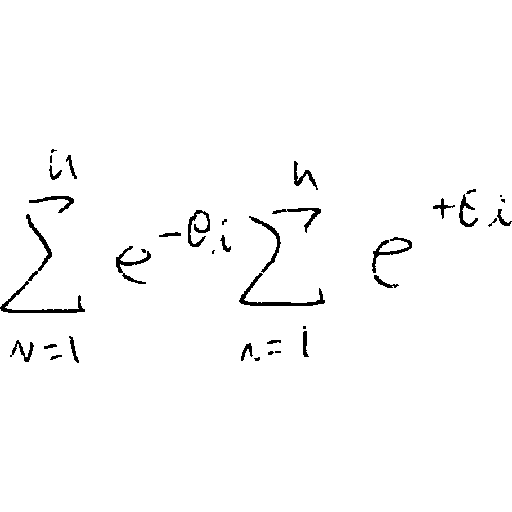 \sum_{n=1}^{n} e^{-\theta i} \sum_{n=1}^{n} e^{+\theta i}